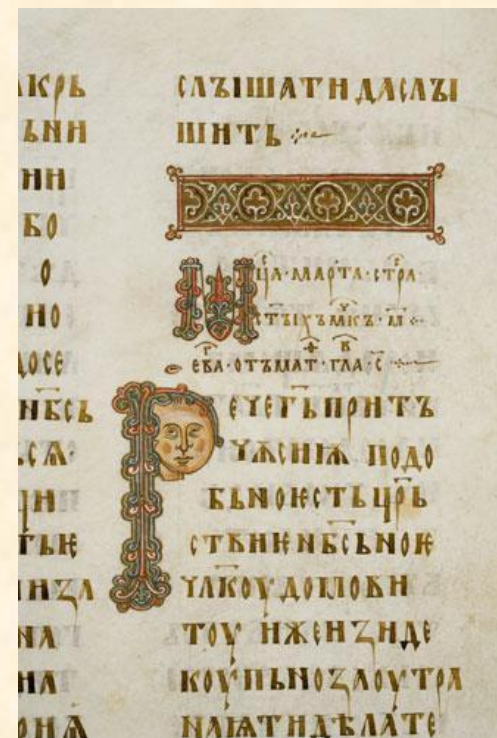 КРЬ
ЬНИ
НИ
БО
О
НО
ДОСЕ
НБ҃СЬ
СѦ·
ЦИ
ТЬѤ
ИЗА
НА
НА
СЛЪІШАТИ ДАСЛЪІ
ШИТЬ
МЦ҃А·МАРТА·СТРА·
СТЪІХЪ М҃КЪ·М҃·
ЕВА·ОТЪМАТ·ГЛА·С
РЕЧЕГ҃ЬПРИТЪ
ЧѪСИѬ ПОДО
БЬНОѤСТЬЦР҃Ь
СТВИѤНБ҃СЬНОѤ
ЧЛ҃КОУДОМОВИ
ТОУ ИЖЕИЗИДЕ
КОУПЬНОЗАОУТРА
НАѨТИДѢЛАТЕ